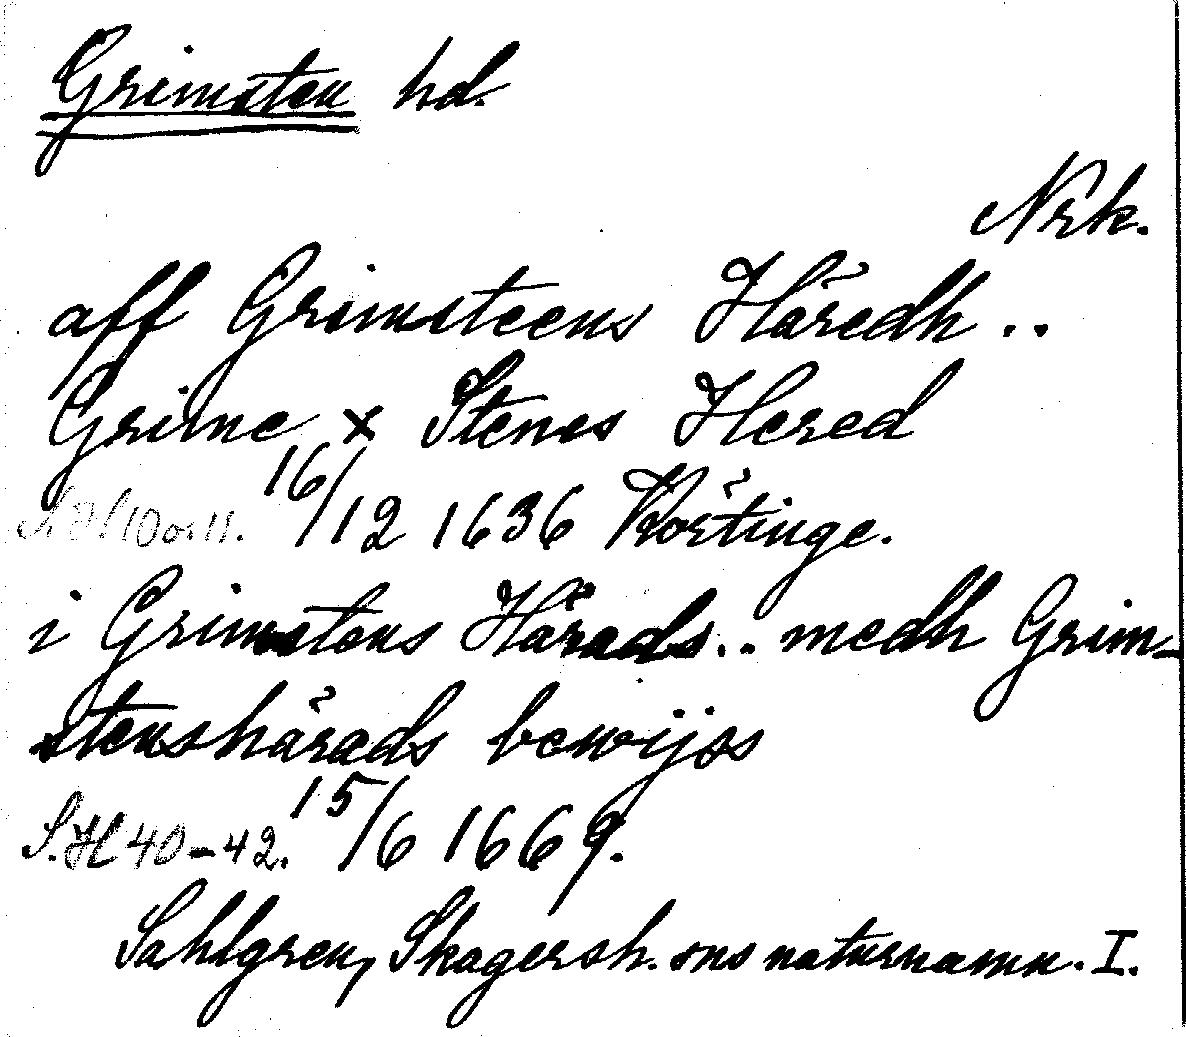 Grimsten hd.
Nrk.
aff Grimsteens Häredh ..
Grime x Stenes Hered
10 o. 11. 16/12 1636 Körtinge.
i Grimstens Härads .. medh Grim-
stenshärads bewijss
S. H 40-42. 15/6 1669.
Sahlgren, Skagersh. sns naturnamn. I.